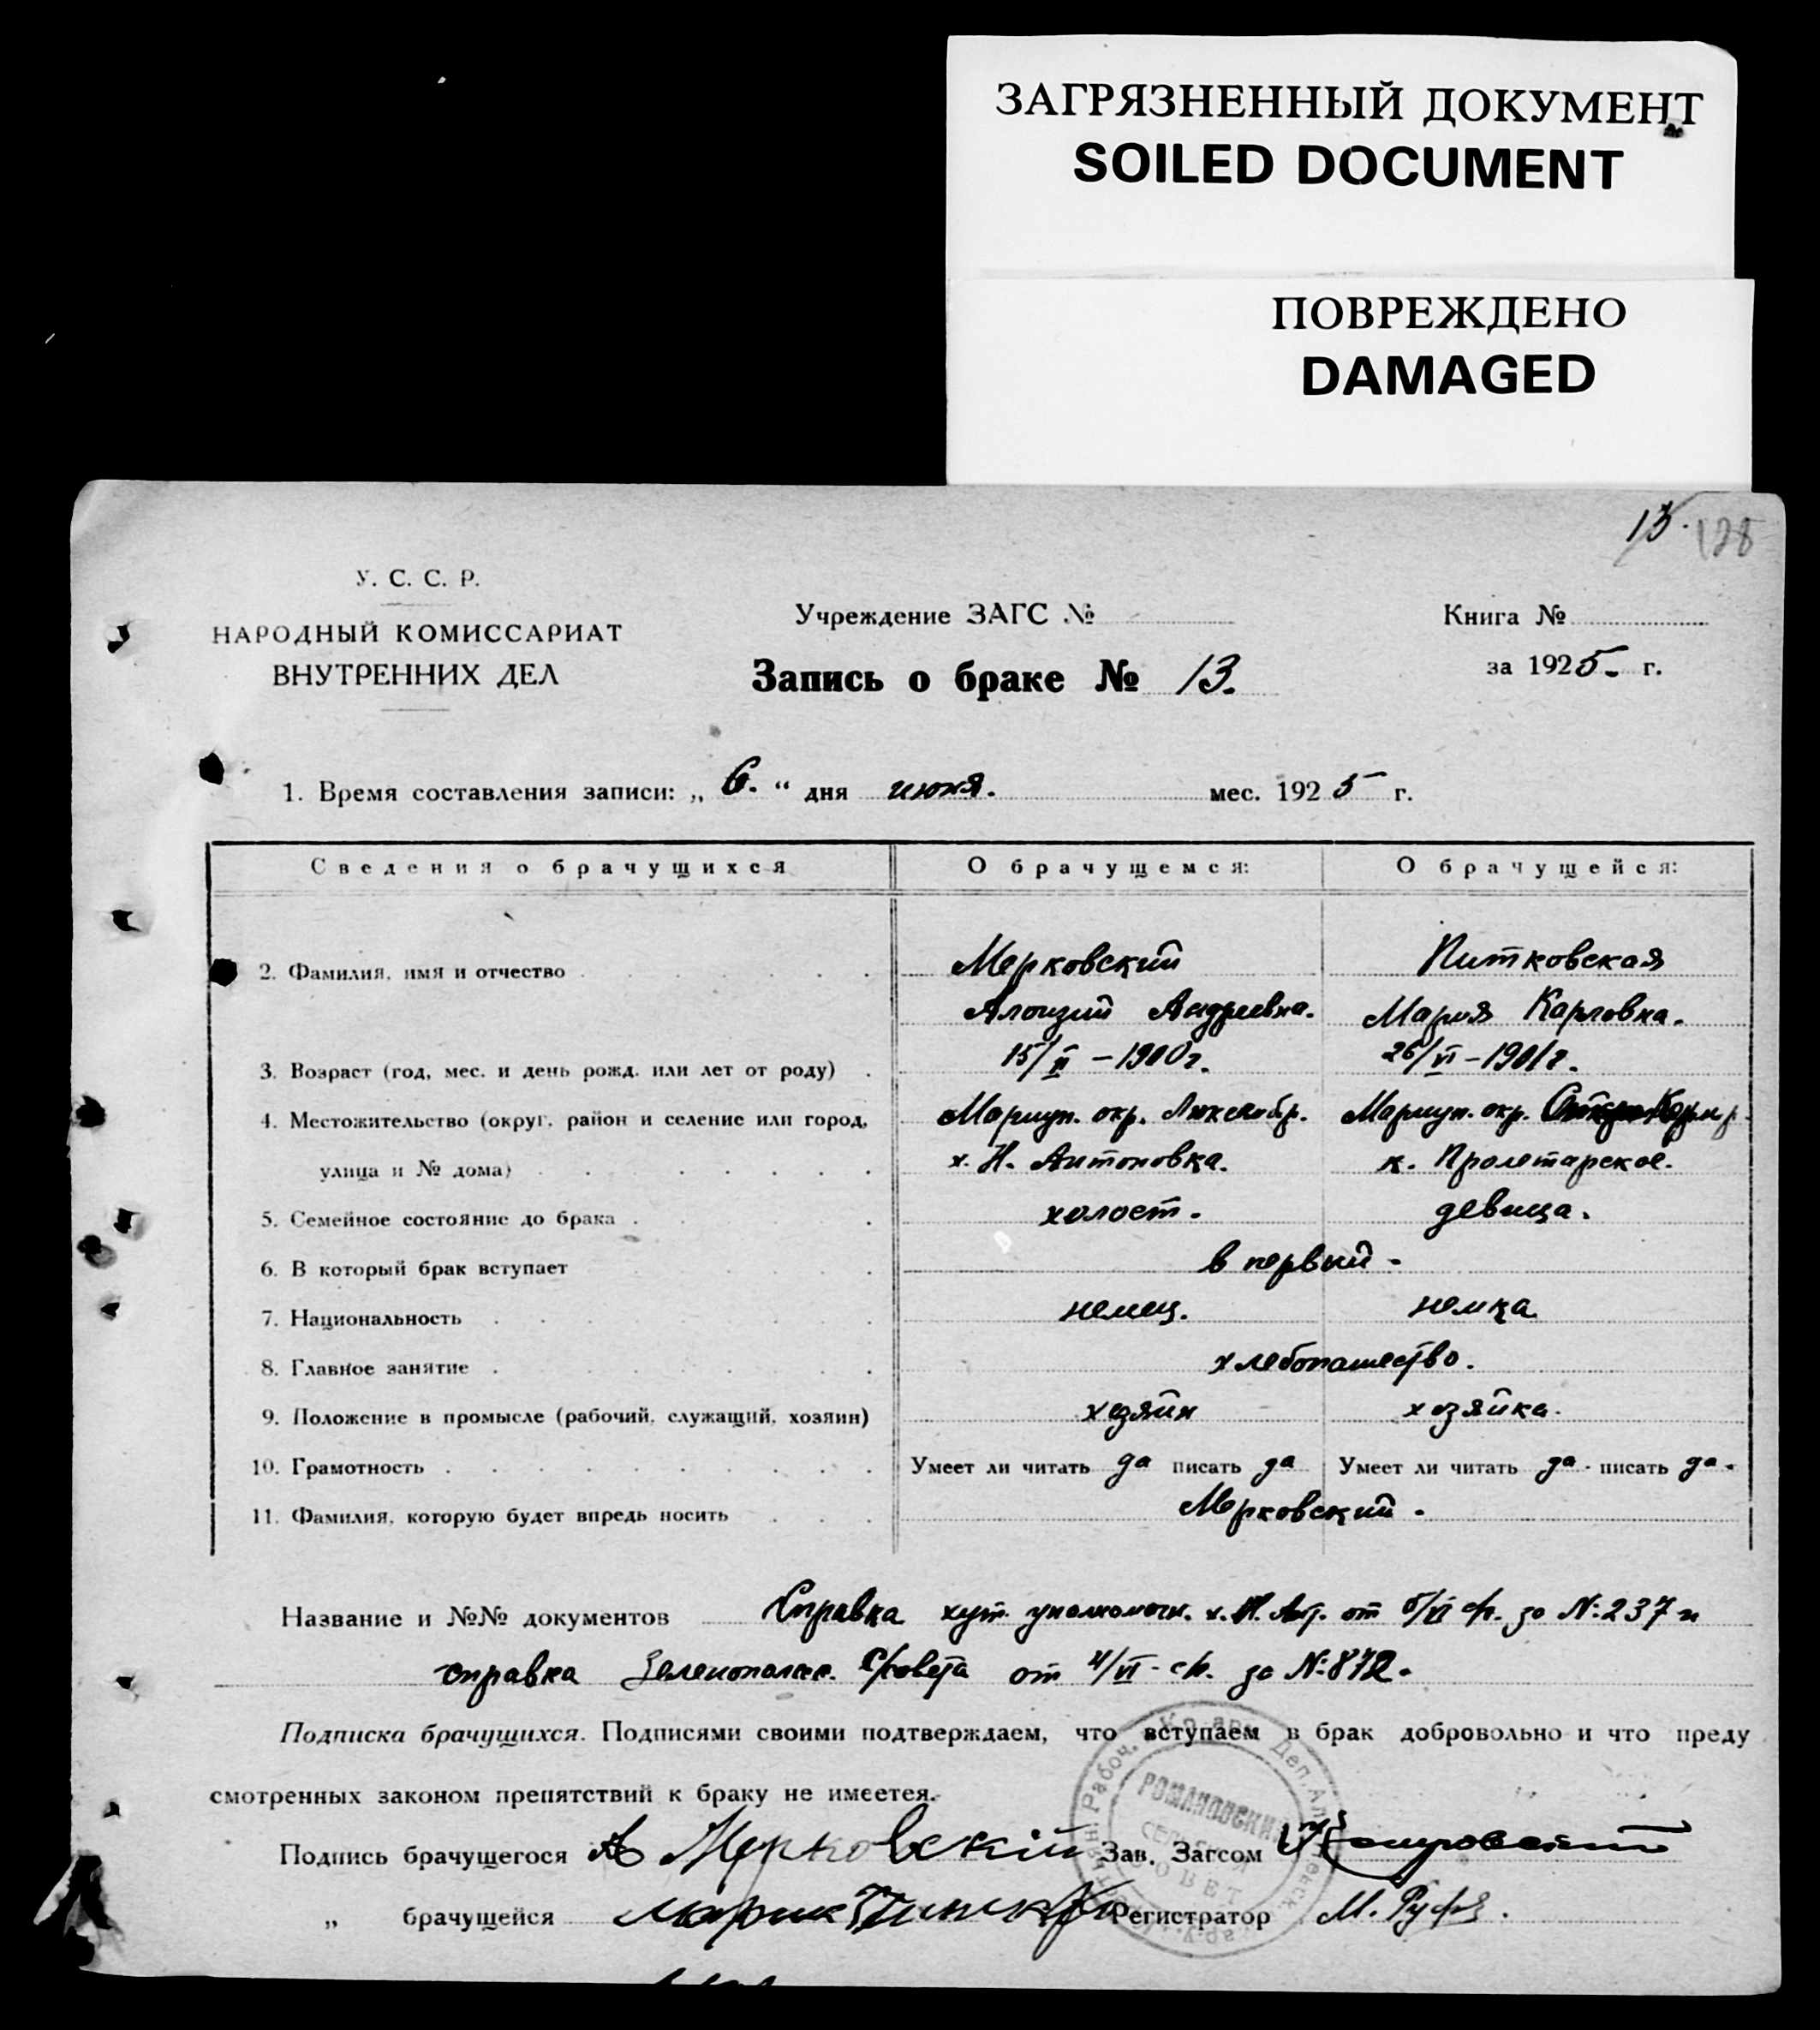 ЗАГРЯЗНЕННЫЙ ДОКУМЕНТ
SOILED DOCUMENT
ПОВРЕЖДЕНО
DAMAGED
13. 128
У. С. С. Р.
НАРОДНЫЙ КОМИССАРИАТ
ВНУТРЕННИХ ДЕЛ
Учреждение ЗАГС №
Запись о браке № 13.
Книга №
за 1925 г.
1. Время составления записи: „ 6. “ дня июня. мес. 1925 г.
Сведения о брачущихся О брачущемся: О брачущейся:
2. Фамилия, имя и отчество Мерковский Питковская
Алоизий Андреевна. Мария Карловна.
3. Возраст (год, мес. и день рожд. или лет от роду) 15/II – 1900 г. 26/VI – 1901 г.
4. Местожительство (округ, район и селение или город, Мариуп. окр. Мариуп. окр.
улица и № дома) х. Н. Антоновка. к. Пролетарское.
5. Семейное состояние до брака холост. девица.
6. В который брак вступает в первый -
7. Национальность немец. немка
8. Главное занятие хлебопашество.
9. Положение в промысле (рабочий, служащий, хозяин) хозяин хозяйка.
10. Грамотность Умеет ли читать да писать да Умеет ли читать да. писать да.
11. Фамилия, которую будет впредь носить Мерковский.
Название и №№ документов Справка хут. уполномоч. х. Н. Ант. от 6/VI с/г. за №237 и
справка Зеленопольск. с/совета от 4/VI - с/г. за №872.
Подписка брачущихся. Подписями своими подтверждаем, что вступаем в брак добровольно и что преду
смотренных законом препятствий к браку не имеется.
РОМАНОВСКИЙ
СЕЛЬСКИЙ
СОВЕТ
Подпись брачущегося А Мерковскій Зав. Загсом
„ брачущейся Регистратор М.